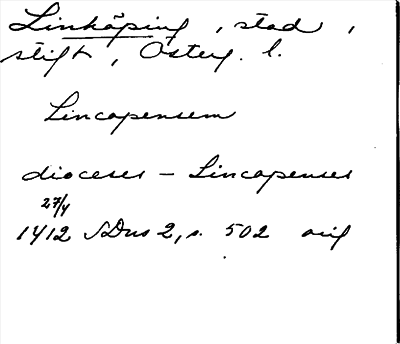 Linköping, stad,
stift, Österg. l.
Lincopensem
dioceses - Lincopenses
27/4
1412 SDns 2, s. 502 orig